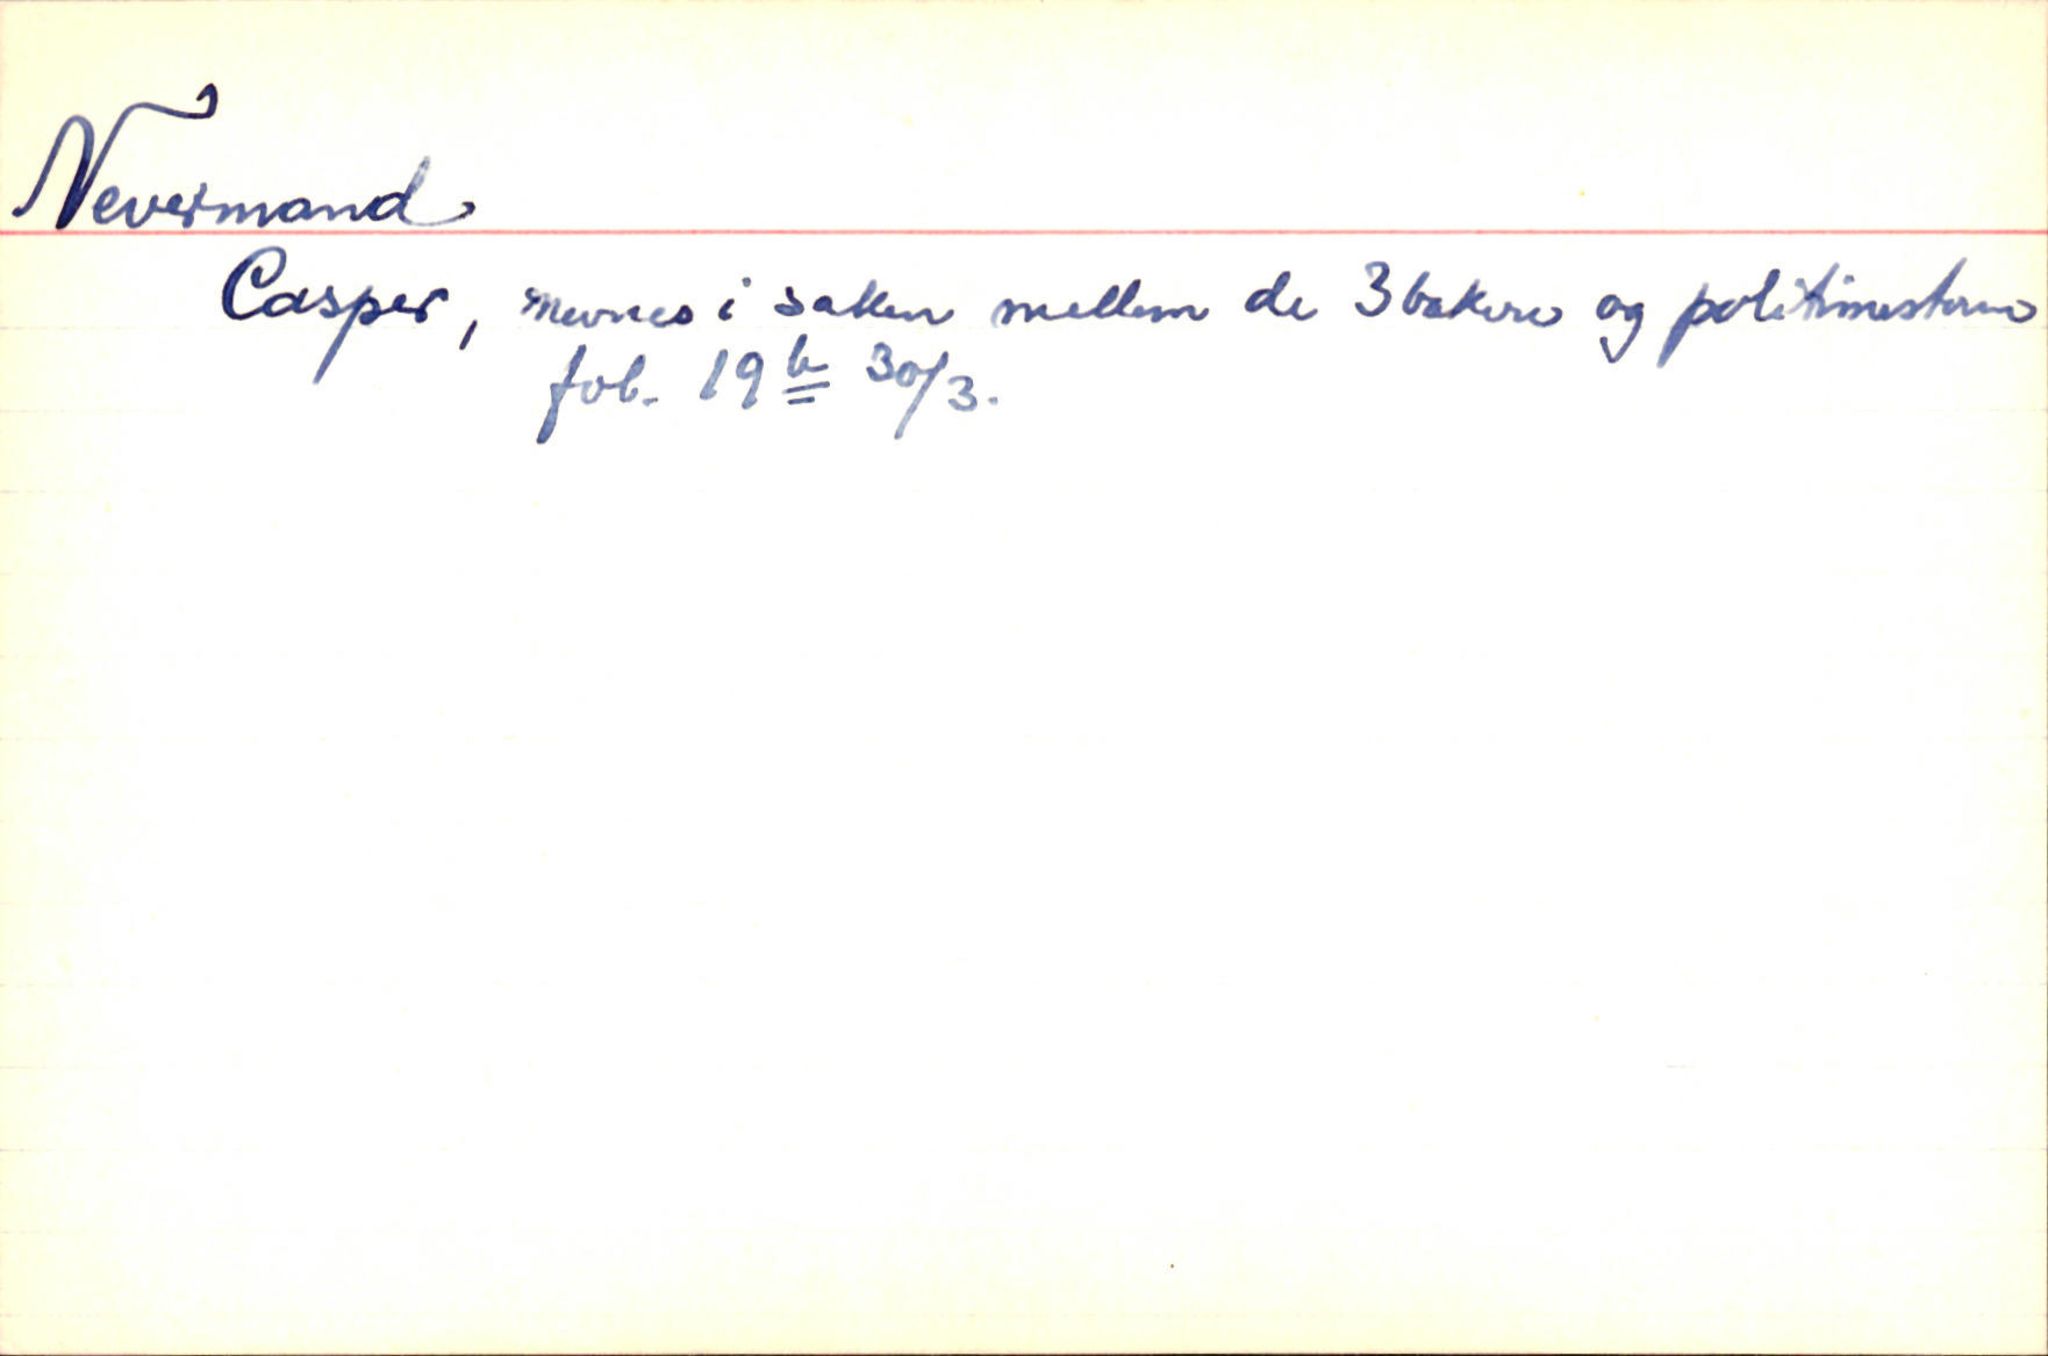 Nevermand
Casper, nevnes i saken mellem de 3 bakere og politimesteren
fol. 19 b 30/3.